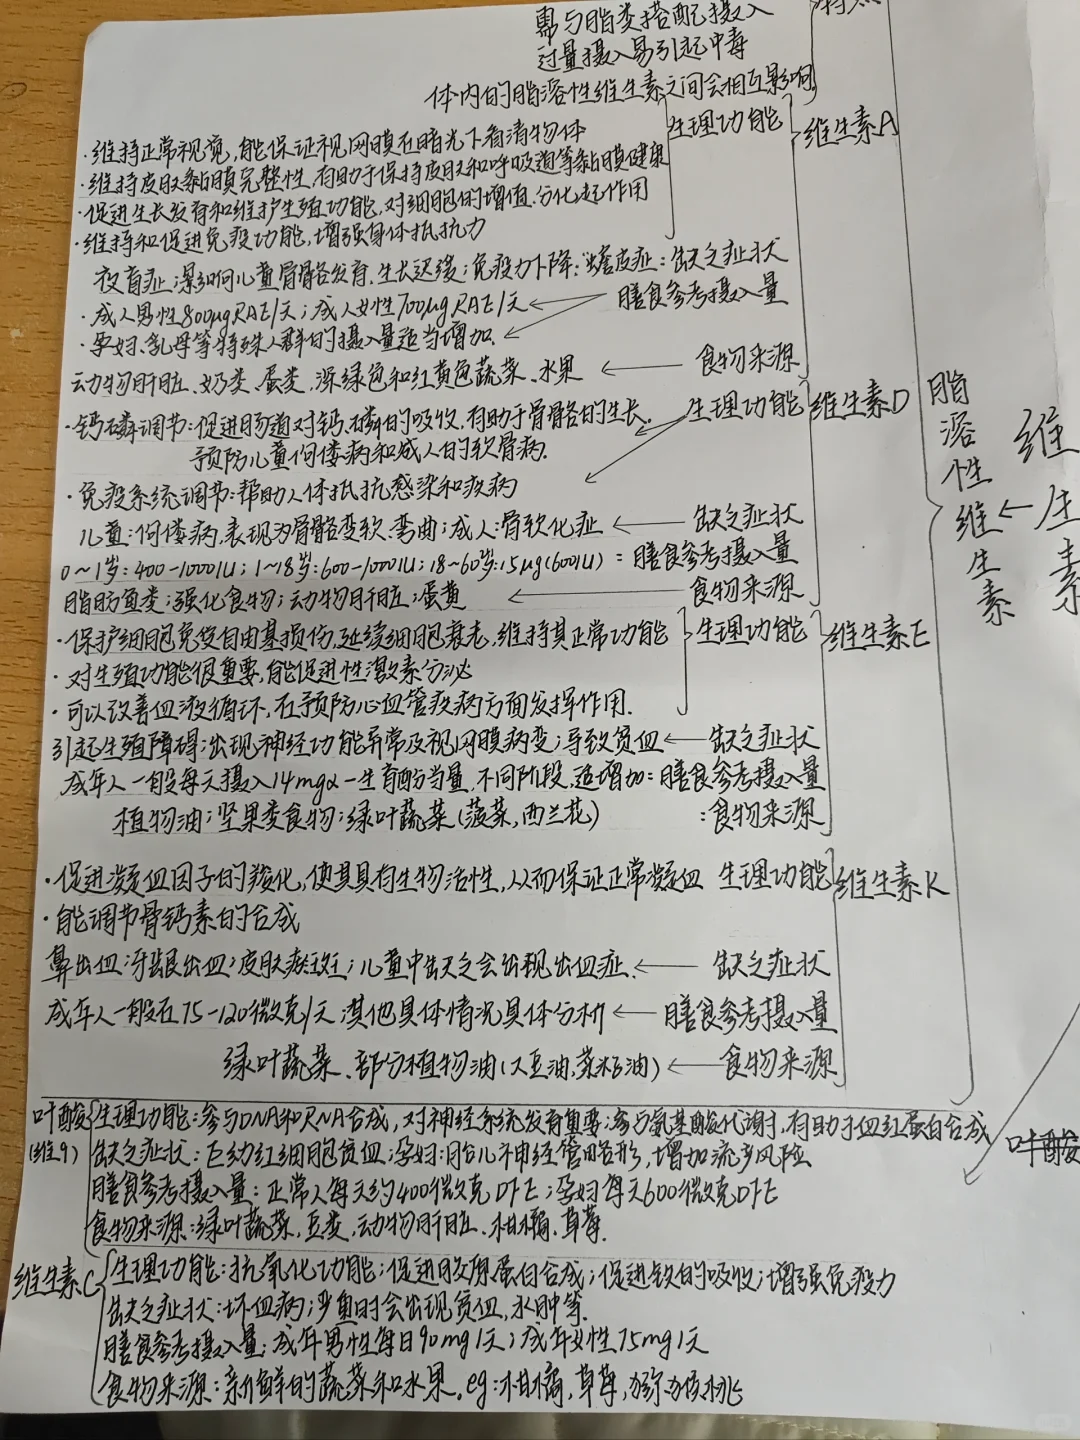 需与脂类搭配摄入
过量摄入易引起中毒
体内的脂溶性维生素之间会相互影响
生理功能 维生素A
·维持正常视觉,能保证视网膜在暗光下看清物体
·维持皮肤黏膜完整性,有助于保持皮肤和呼吸道等黏膜健康
·促进生长发育和维护生殖功能,对细胞的增值、分化起作用
·维持和促进免疫功能,增强身体抵抗力
夜盲症;影响儿童骨骼发育、生长迟缓;免疫力下降;蟾皮症:缺乏症状
·成人男性800μgRAE/天;成人女性700μgRAE/天 ← 膳食参考摄入量
·孕妇、乳母等特殊人群的摄入量适当增加.
动物肝脏、奶类、蛋类,深绿色和红黄色蔬菜、水果 ← 食物来源
·钙磷调节:促进肠道对钙、磷的吸收,有助于骨骼的生长、 生理功能 维生素D
预防儿童佝偻病和成人的软骨病.
·免疫系统调节:帮助人体抵抗感染和疾病
儿童:佝偻病,表现为骨骼变软、弯曲;成人:骨软化症 ← 缺乏症状
0~1岁:400-1000IU;1~18岁:600-1000IU;18~60岁:15μg(600IU):膳食参考摄入量
脂肪鱼类;强化食物;动物肝脏;蛋黄 ← 食物来源
脂溶性维生素 ← 维生素
·保护细胞免受自由基损伤,延缓细胞衰老,维持其正常功能 生理功能 维生素E
·对生殖功能很重要,能促进性激素分泌
·可以改善血液循环,在预防心血管疾病方面发挥作用.
引起生殖障碍;出现神经功能异常及视网膜病变;导致贫血 ← 缺乏症状
成年人一般每天摄入14mgα-生育酚当量,不同阶段,适增加:膳食参考摄入量
植物油;坚果类食物;绿叶蔬菜(菠菜,西兰花) :食物来源
·促进凝血因子的羧化,使其具有生物活性,从而保证正常凝血 生理功能 维生素K
·能调节骨钙素的合成
鼻出血;牙龈出血;皮肤瘀斑;儿童中缺乏会出现出血症. ← 缺乏症状
成年人一般在75-120微克/天,其他具体情况具体分析 ← 膳食参考摄入量
绿叶蔬菜、部分植物油(大豆油,菜籽油) ← 食物来源
叶酸 生理功能:参与DNA和RNA合成,对神经系统发育重要;参与氨基酸代谢,有助于血红蛋白合成
叶酸
(维9) 缺乏症状:巨幼红细胞贫血;孕妇:胎儿神经管畸形,增加流产风险
膳食参考摄入量:正常人每天约400微克DFE;孕妇每天600微克DFE
食物来源:绿叶蔬菜,豆类,动物肝脏、柑橘、草莓.
维生素C 生理功能:抗氧化功能;促进胶原蛋白合成;促进铁的吸收;增强免疫力
缺乏症状:坏血病;严重时会出现贫血,水肿等.
膳食参考摄入量:成年男性每日90mg/天;成年女性75mg/天
食物来源:新鲜的蔬菜和水果,eg:柑橘,草莓,猕猴桃